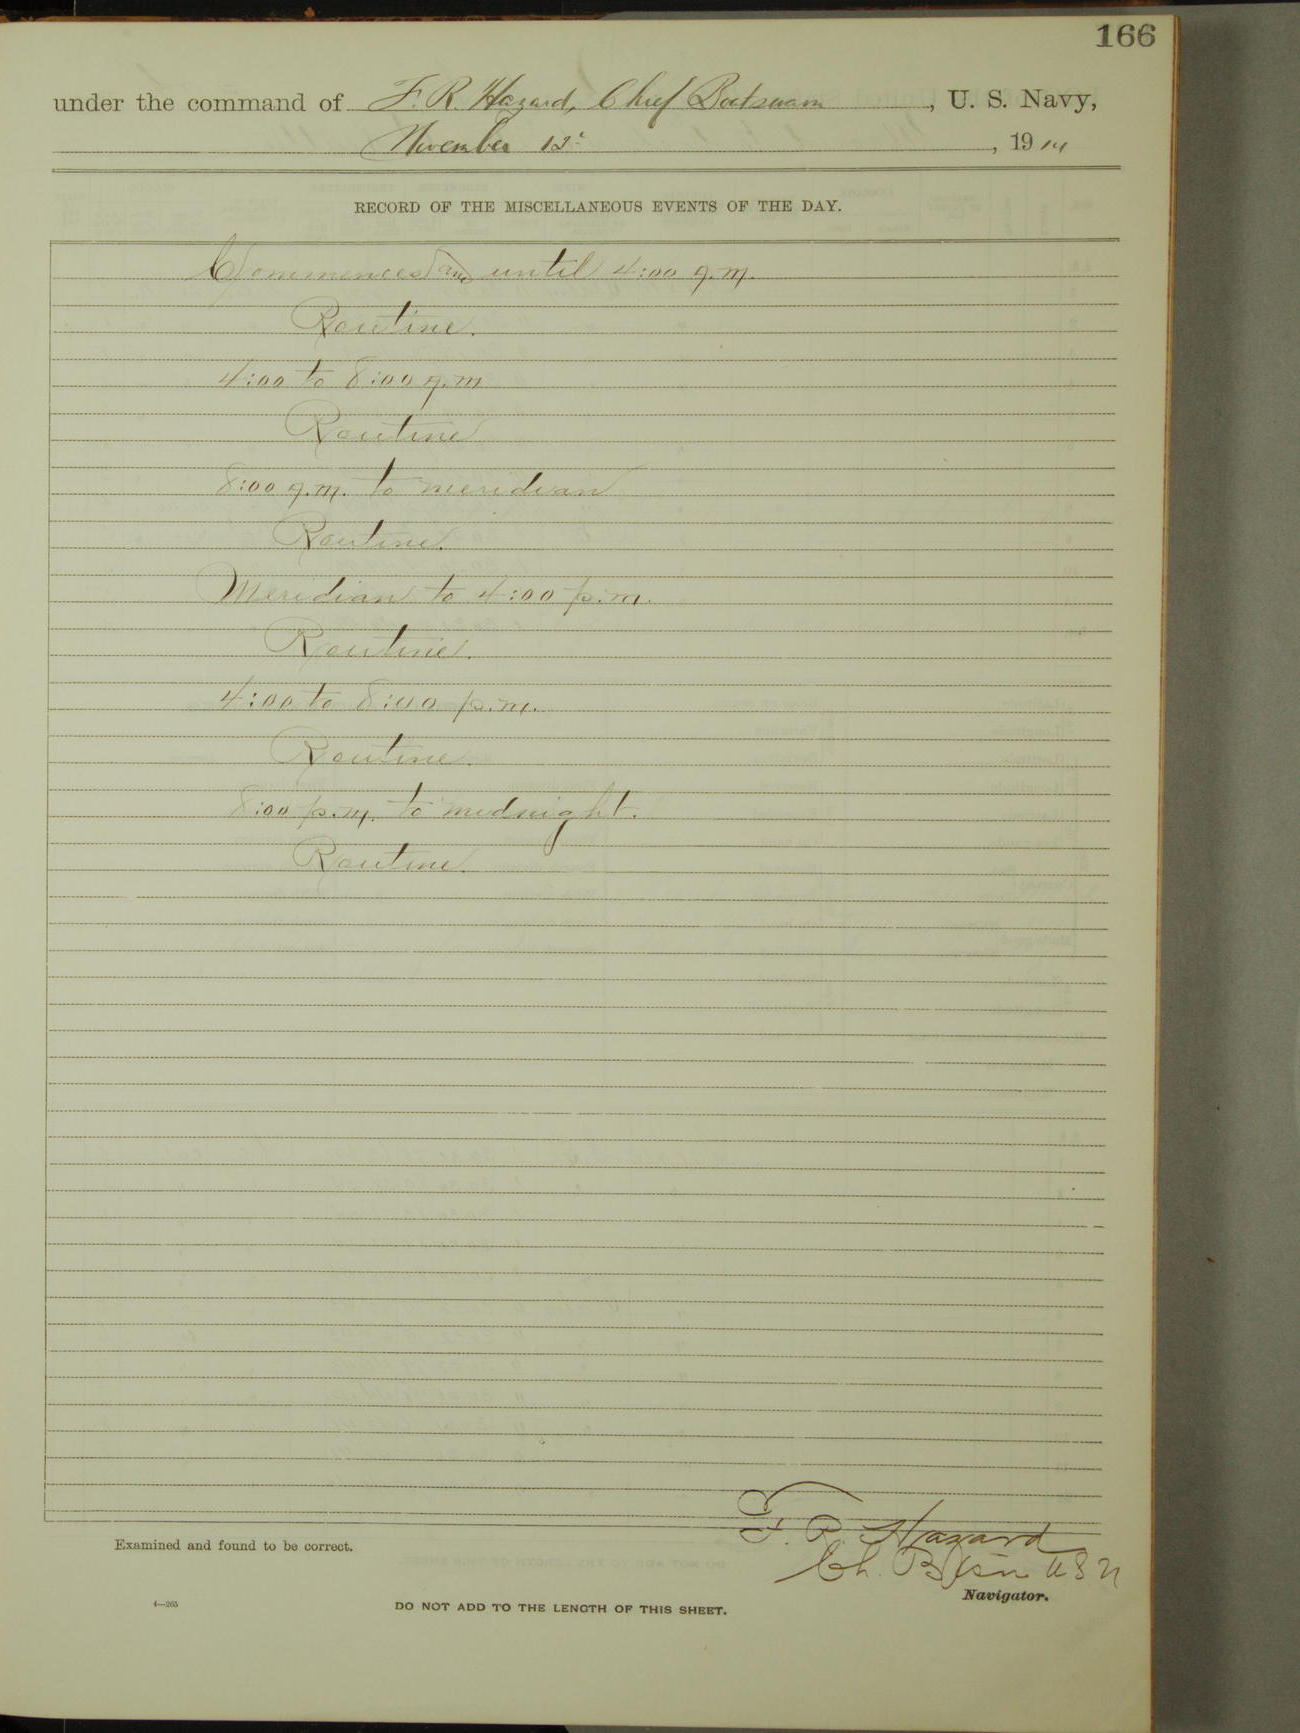 166
under the command of F. R. Hazard, Chief Boatswain, U. S. Navy,
November 12", 1914
RECORD OF THE MISCELLANEOUS EVENTS OF THE DAY.
Commences and until 4:00 a.m.
Routine.
4:00 to 8:00 a.m
Routine
8:00 a.m. to meridian
Routine.
Meridian to 4:00 p.m.
Routine.
4:00 to 8:00 p.m.
Routine.
8:00 p.m. to midnight.
Routine.
F. R. Hazard
Examined and found to be correct.
Ch. Btsn U S N
Navigator.
4—265
DO NOT ADD TO THE LENGTH OF THIS SHEET.